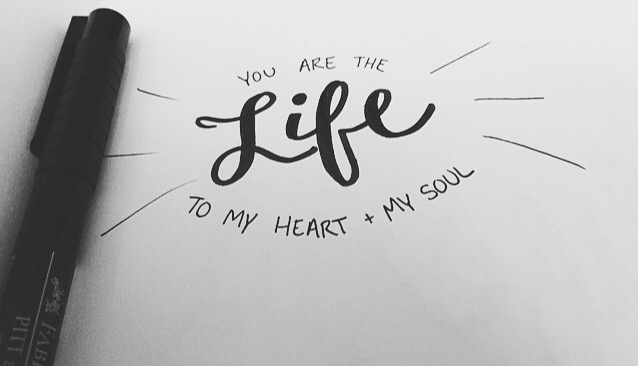 YOU ARE THE
Life
TO MY HEART + MY SOUL
PITT
FABE